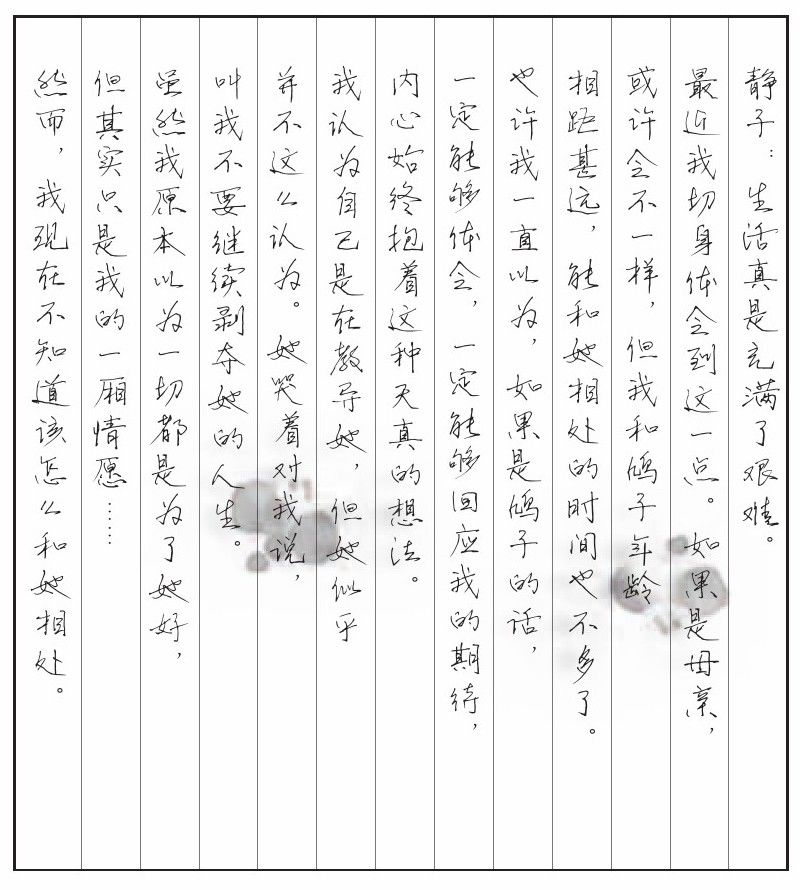 静子：生活真是充满了艰难。
最近我切身体会到这一点。如果是母亲，
或许会不一样，但我和鸠子年龄
相距甚远，能和她相处的时间也不多了。
也许我一直以为，如果是鸠子的话，
一定能够体会，一定能够回应我的期待，
内心始终抱着这种天真的想法。
我认为自己是在教导她，但她似乎
并不这么认为。她哭着对我说，
叫我不要继续剥夺她的人生。
虽然我原本以为一切都是为了她好，
但其实只是我的一厢情愿……
然而，我现在不知道该怎么和她相处。